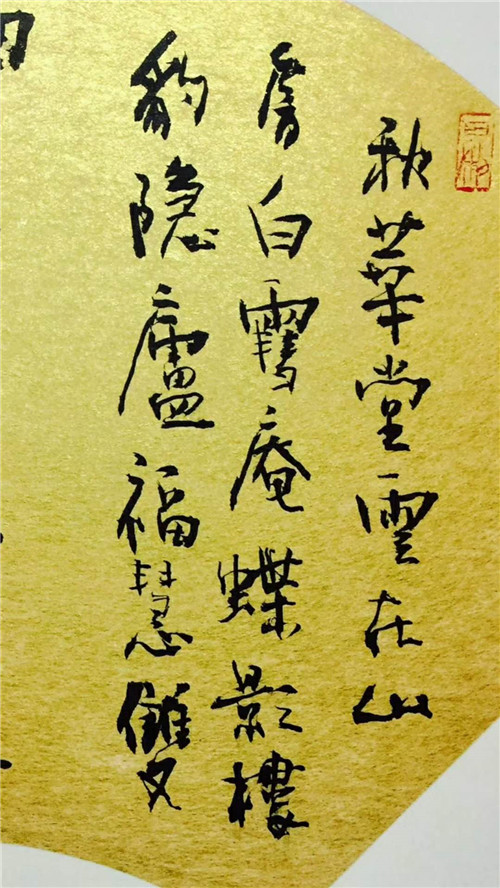 秋華堂雲在山
房白庵蝶影樓
豹隱廬福慧雙